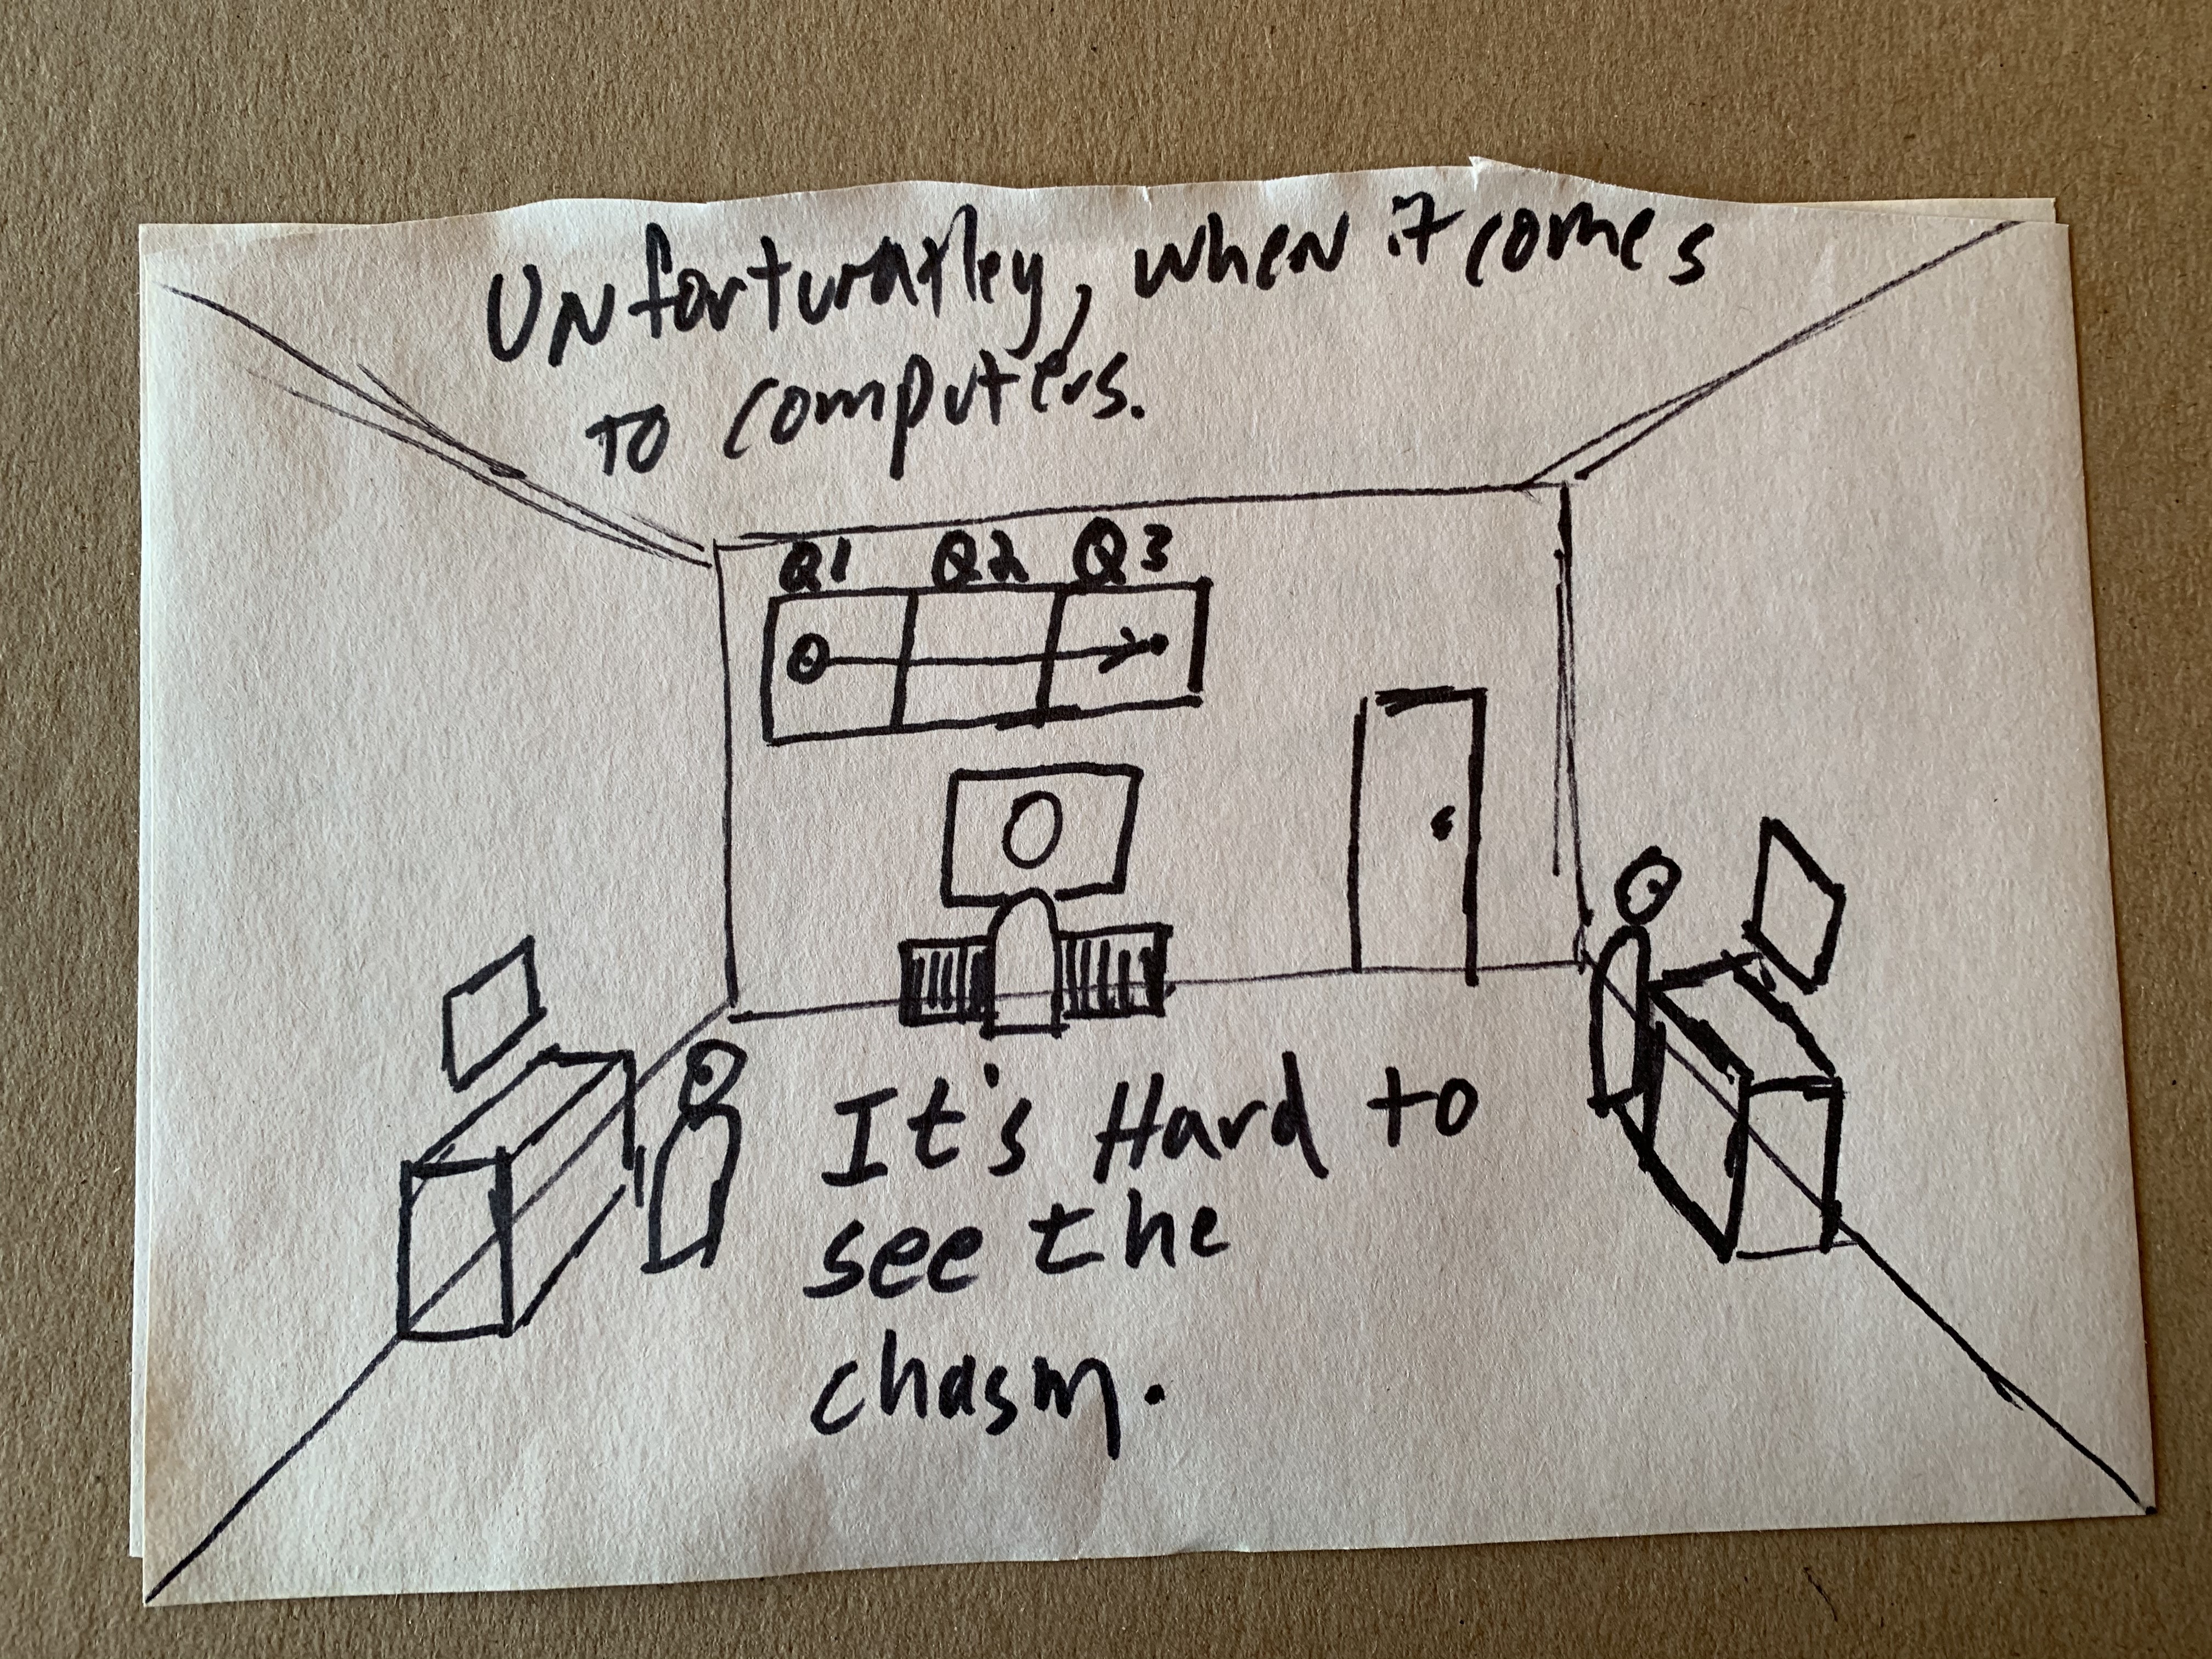 Unfortunatley, when it comes
to computers.
Q1 Q2 Q3
It's Hard to
see the
chasm.